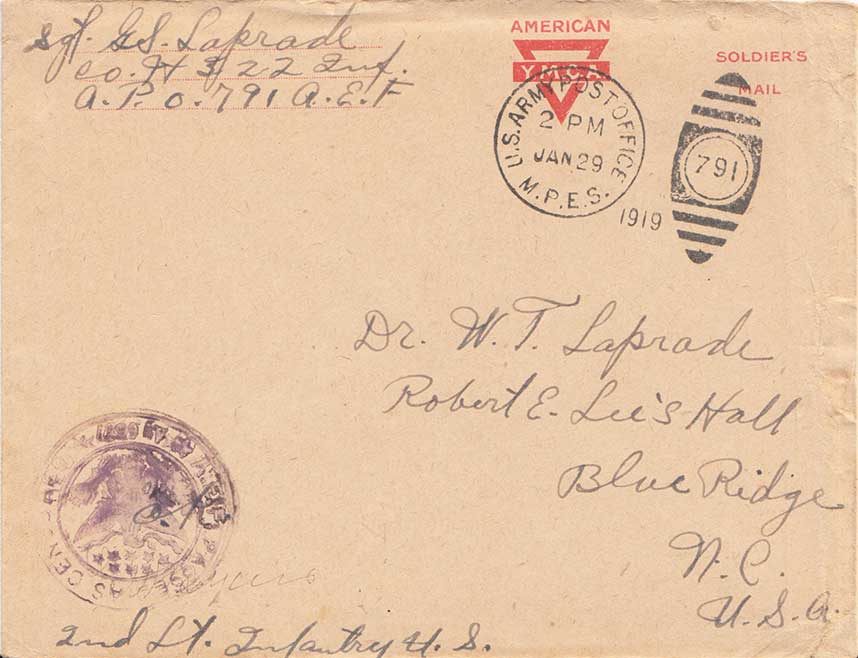 Sgt. G.S. Laprade
Co. H 322 Inf.
A.P.O. 791 A.E.F
AMERICAN
Y.M.C.A
SOLDIER'S
MAIL
U.S. ARMY POST OFFICE
2 PM
JAN 29
M.P.E.S.
1919
791
Dr. W. T. Laprade
Robert E. Lee's Hall
Blue Ridge
N. C.
U. S. A.
PASSED AS CEN
O.K.
2nd Lt. Infantry U. S.